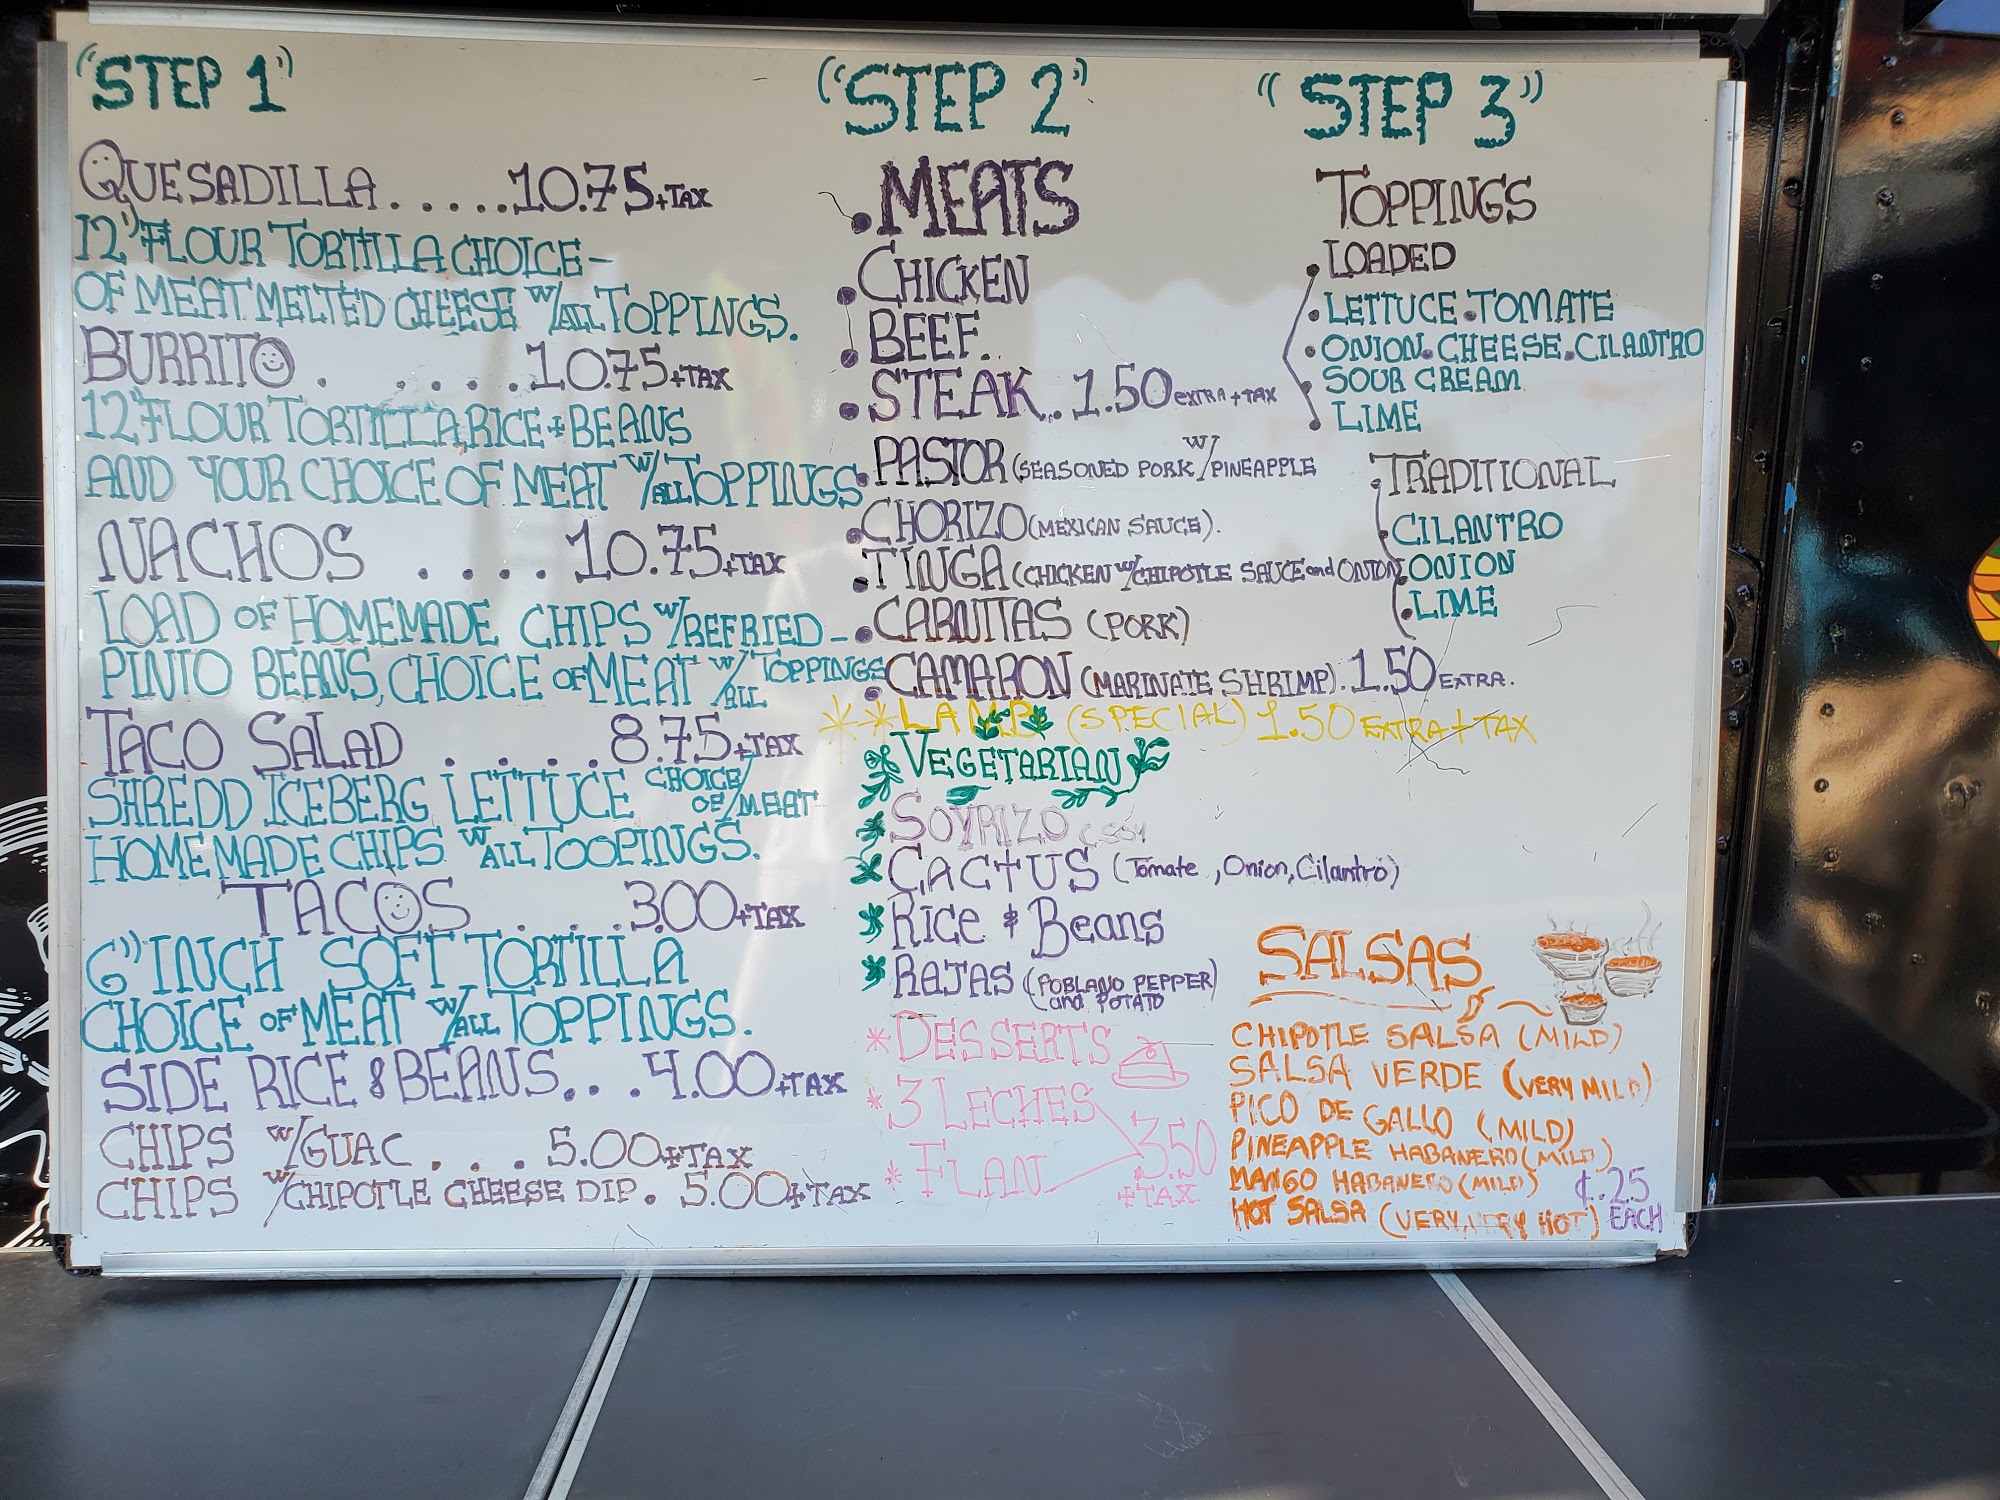 "STEP 1"
QUESADILLA.....10.75+TAX
12" FLOUR TORTILLA CHOICE-
OF MEAT MELTED CHEESE W/ALL TOPPINGS.
BURRITO . ....10.75+TAX
12" FLOUR TORTILLA,RICE & BEANS
AND YOUR CHOICE OF MEAT W/ALL TOPPINGS
NACHOS ....10.75+TAX
LOAD OF HOMEMADE CHIPS W/REFRIED-
PINTO BEANS, CHOICE OF MEAT W/ALL TOPPINGS
TACO SALAD .....8.75+TAX
SHREDD ICEBERG LETTUCE CHOICE OF/MEAT
HOMEMADE CHIPS W/ALL TOOPINGS.
TACOS ....3.00+TAX
6" INCH SOFT TORTILLA
CHOICE OF MEAT W/ALL TOPPINGS.
SIDE RICE & BEANS...4.00+TAX
CHIPS W/GUAC.... 5.00+TAX
CHIPS W/CHIPOTLE CHEESE DIP. 5.00+TAX
("STEP 2")
.MEATS
.CHICKEN
.BEEF.
.STEAK..1.50 EXTRA+TAX
.PASTOR (SEASONED PORK W/PINEAPPLE
.CHORIZO (MEXICAN SAUCE).
.TINGA (CHICKEN W/CHIPOTLE SAUCE and ONION
.CARNITAS (PORK)
.CAMARON (MARINATE SHRIMP).1.50 EXTRA.
**LAMB (SPECIAL) 1.50 EXTRA+TAX
*VEGETARIAN
SOYRIZO
CACTUS (Tomate, Onion, Cilantro)
RICE & BEANS
RAJAS (POBLANO PEPPER and POTATO)
*DESSERTS
*3 LECHES
*FLAN 3.50
+TAX
"STEP 3"
TOPPINGS
.LOADED
.LETTUCE.TOMATE
.ONION.CHEESE.CILANTRO
.SOUR CREAM
.LIME
.TRADITIONAL
.CILANTRO
.ONION
.LIME
SALSAS
CHIPOTLE SALSA (MILD)
SALSA VERDE (VERY MILD)
PICO DE GALLO (MILD)
PINEAPPLE HABANERO (MILD)
MANGO HABANERO (MILD)
HOT SALSA (VERY,VERY HOT)
¢.25
EACH